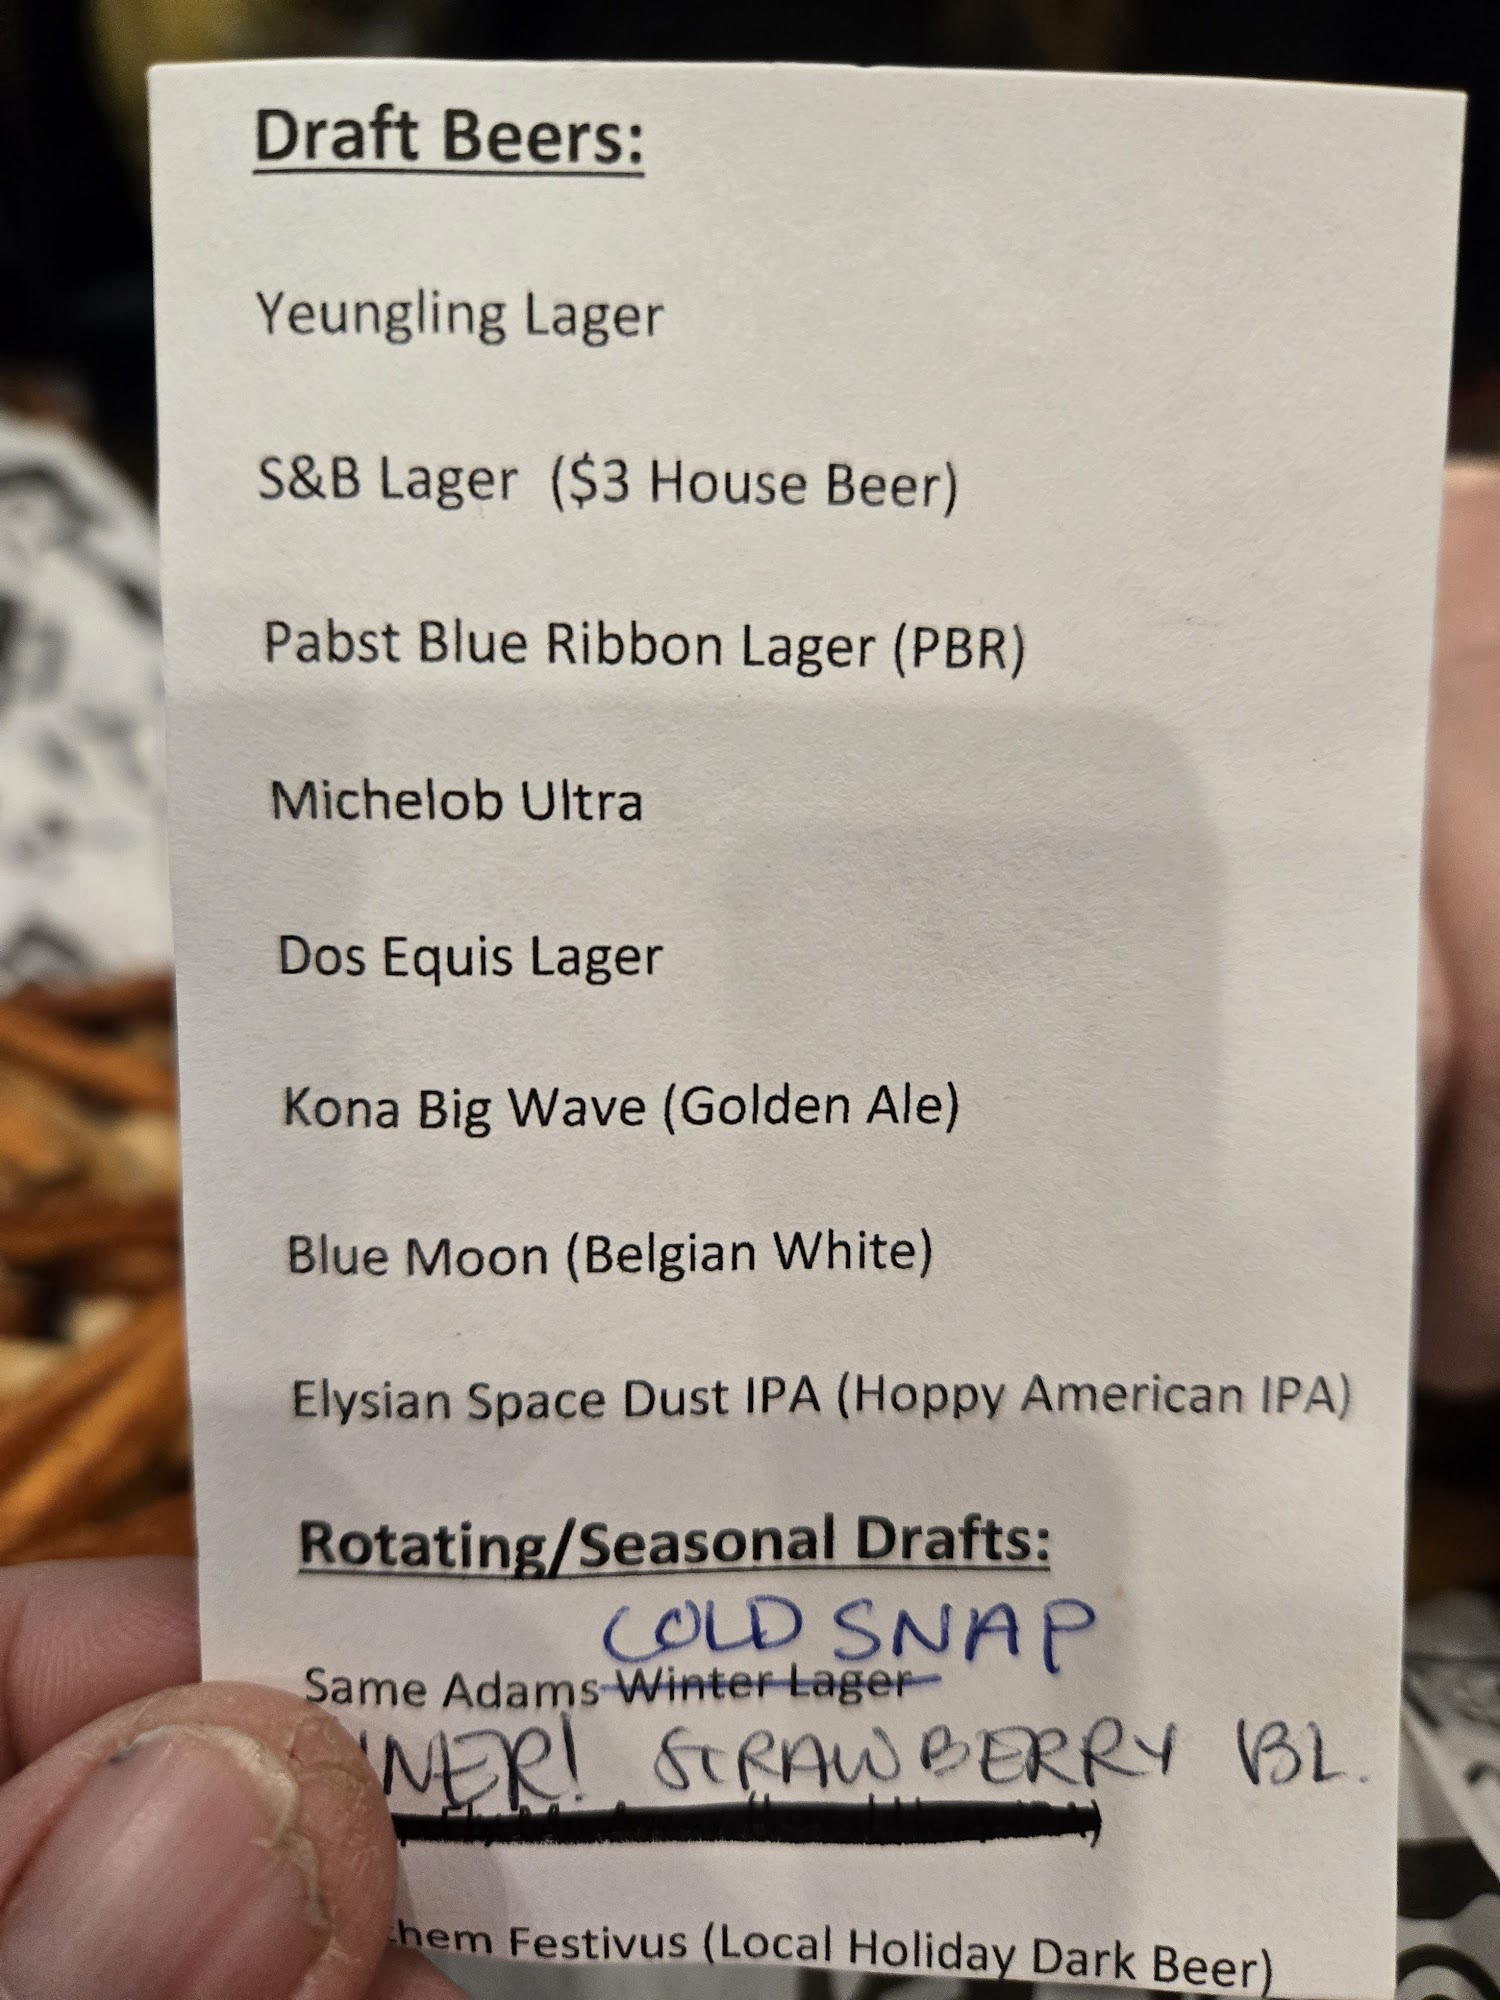 Draft Beers:
Yeungling Lager
S&B Lager ($3 House Beer)
Pabst Blue Ribbon Lager (PBR)
Michelob Ultra
Dos Equis Lager
Kona Big Wave (Golden Ale)
Blue Moon (Belgian White)
Elysian Space Dust IPA (Hoppy American IPA)
Rotating/Seasonal Drafts:
COLD SNAP
Same Adams Winter Lager
NER! STRAWBERRY BL.
hem Festivus (Local Holiday Dark Beer)